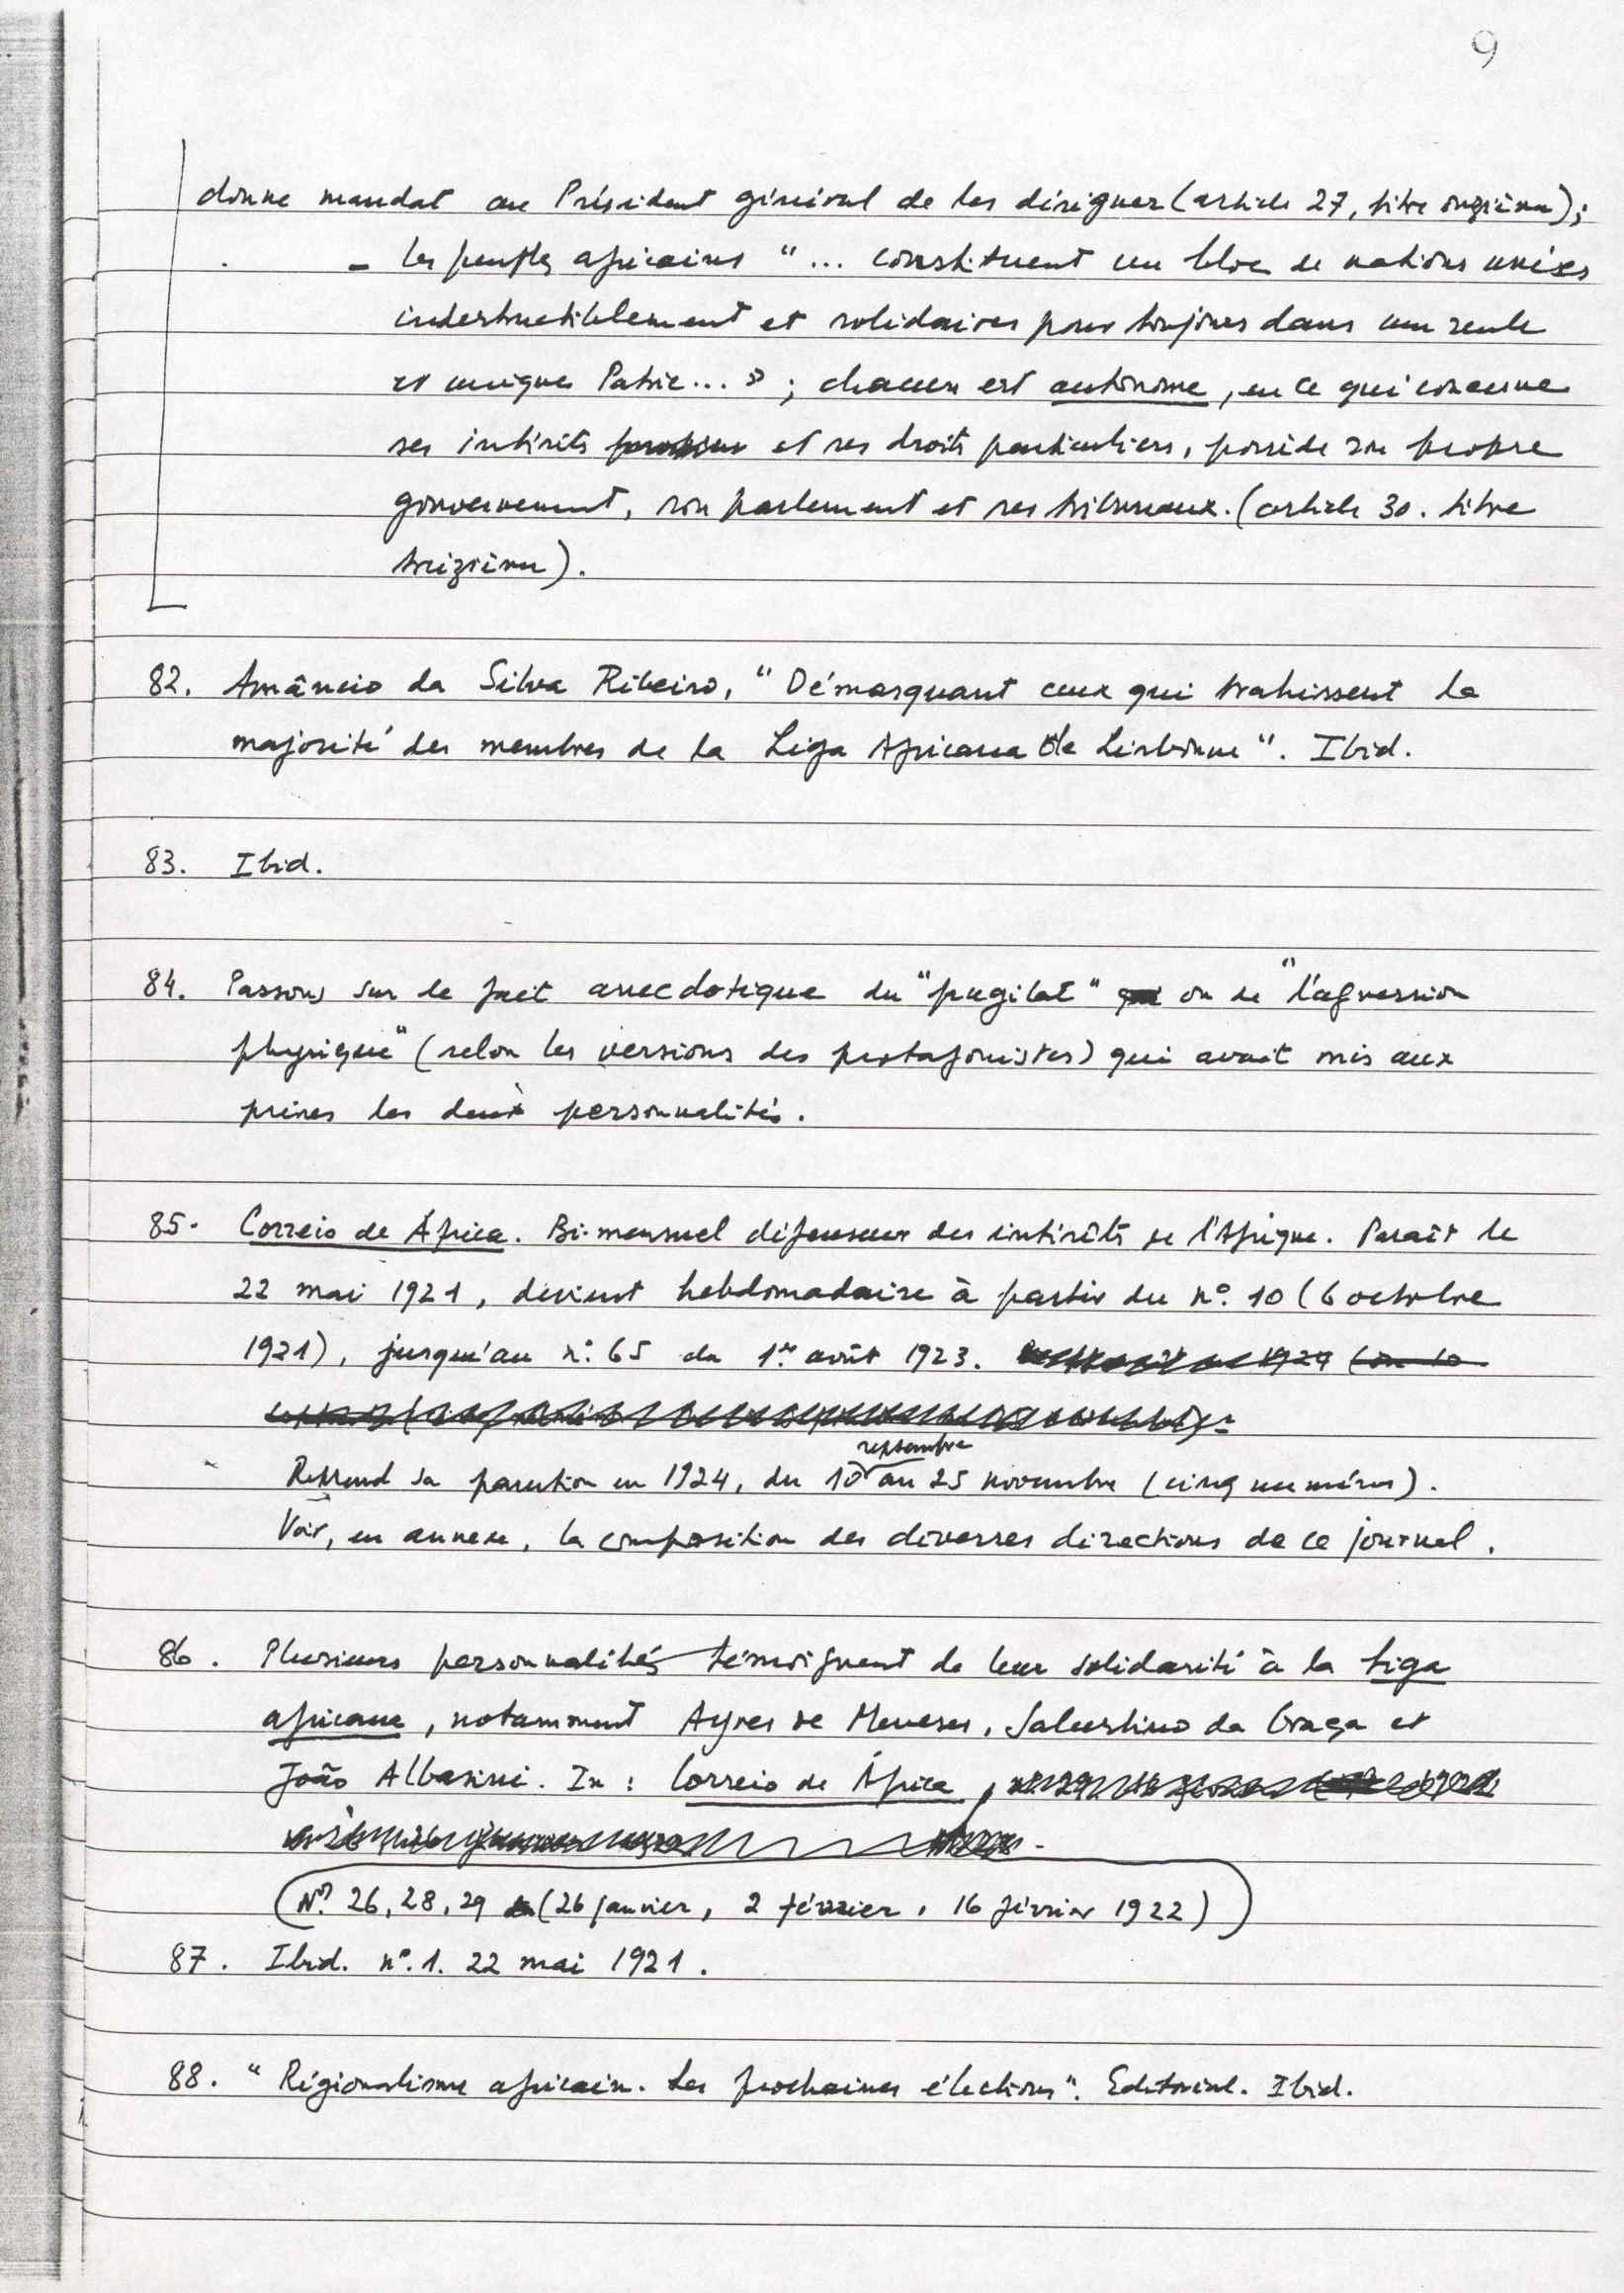 9
donne mandat au Président général de les désigner (article 27, titre onzième);
- les peuples africains "... constituent un bloc de nations unies
indestructiblement et solidaires pour toujours dans une seule
et unique Patrie... » ; chacun est autonome, en ce qui concerne
ses intérêts et ses droits particuliers, possède son propre
gouvernement, son parlement et ses tribunaux. (article 30. titre
treizième).
82. Amâncio da Silva Ribeiro, "Démasquant ceux qui trahissent la
majorité des membres de la Liga Africana de Lisbonne". Ibid.
83. Ibid.
84. Passons sur le fait anecdotique du "pugilat" ou de "l'agression
physique" (selon les versions des protagonistes) qui avait mis aux
prises les deux personnalités.
85. Correio de África. Bi-mensuel défenseur des intérêts de l'Afrique. Paraît le
22 mai 1921, devient hebdomadaire à partir du nº. 10 (6 octobre
1921), jusqu'au nº. 65 du 1er août 1923.
Reprend sa parution en 1924, du 10 septembre au 25 novembre (cinq numéros).
Voir, en annexe, la composition des diverses directions de ce journal.
86. Plusieurs personnalités témoignent de leur solidarité à la Liga
africana, notamment Ayres de Meneses, Salustino da Graça et
João Albasini. In : Correio de África,
(Nº. 26, 28, 29 (26 janvier, 2 février, 16 février 1922))
87. Ibid. nº. 1. 22 mai 1921.
88. "Régionalisme africain. Les prochaines élections". Editorial. Ibid.